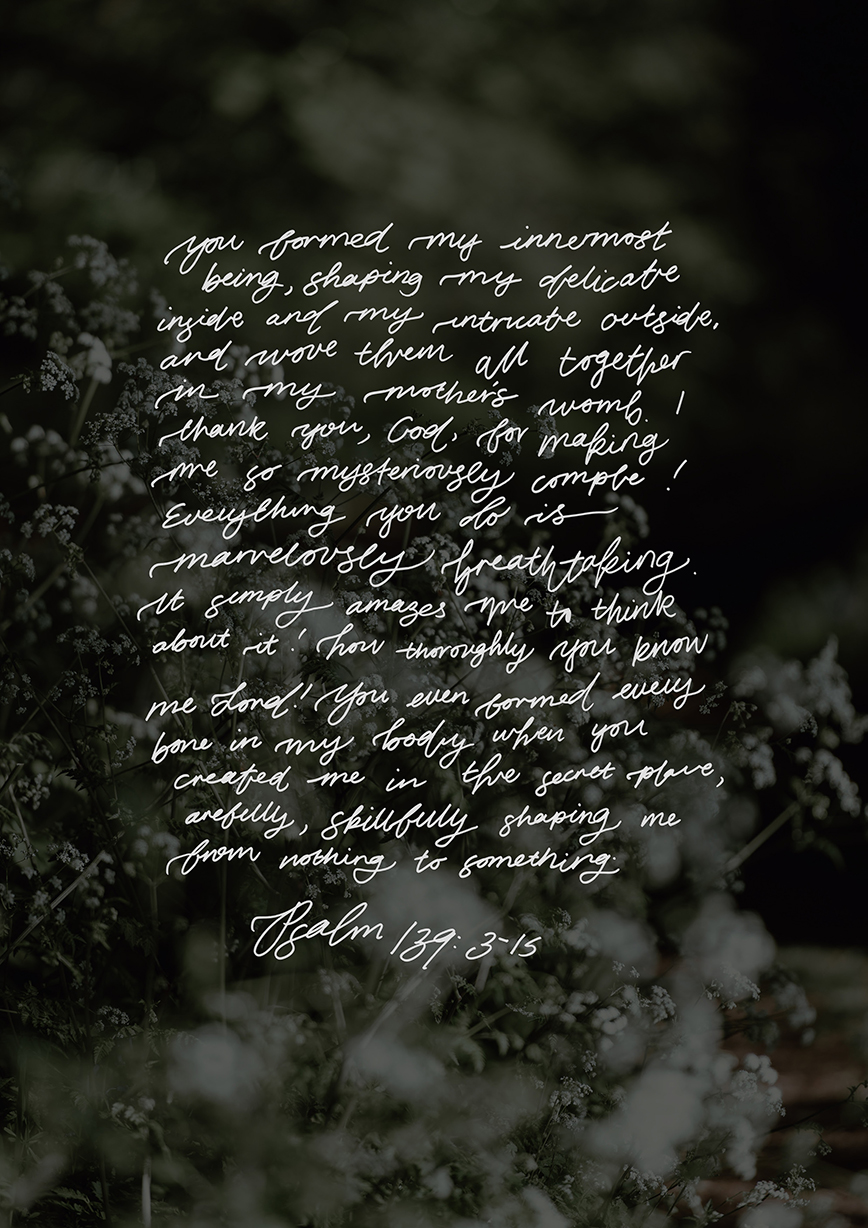 you formed my innermost
being, shaping my delicate
inside and my intricate outside,
and wove them all together
in my mother's womb. I
thank you, God, for making
me so mysteriously comple !
Everything you do is
marvelously breathtaking.
it simply amazes me to think
about it! how thoroughly you know
me Lord! You even formed every
bone in my body when you
created me in the secret place,
arefully, skillfully shaping me
from nothing to something.
Psalm 139: 3-15